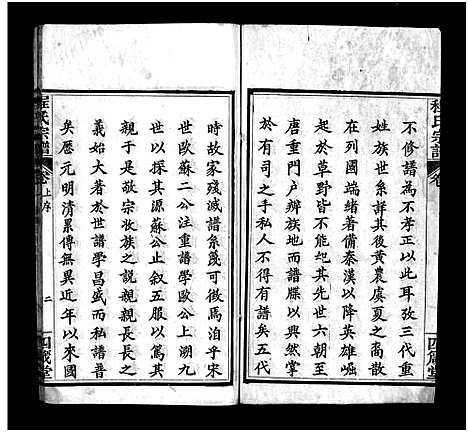 程氏宗譜
卷
四箴堂
不修譜為不孝正以此耳攷三代重
姓族世系詳其後黃農虞夏之裔散
在列國端緒著備秦漢以降英雄崛
起於草野皆不能紀其世六朝至
唐重門戶辨族地而譜牒以興然掌
於有司之手私人不得有譜矣五代
時故家殘滅譜系蔑可徵焉洎乎宋
世歐蘇二公注重譜學歐公上溯九
世以探其源蘇公止敘五服以使其
親於是敬宗收族之說親親長長之
義始大著於世譜學昌盛而私譜作
矣歷元明清累傳無異近年以來國
程氏宗譜
卷上序
二
四箴堂